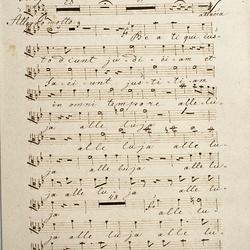 23
attacca
Allo molto
Be a ti qui cus-
to diunt ju-di-ci-um et
fa-ci unt jus-ti-ti-am
in omni tempore alle lu-
ja alle luja
alle luja alle lu-
ja alle luja alle lu-
ja 43 alle lu-
ja alle luja alle lu-
ja alle lu-